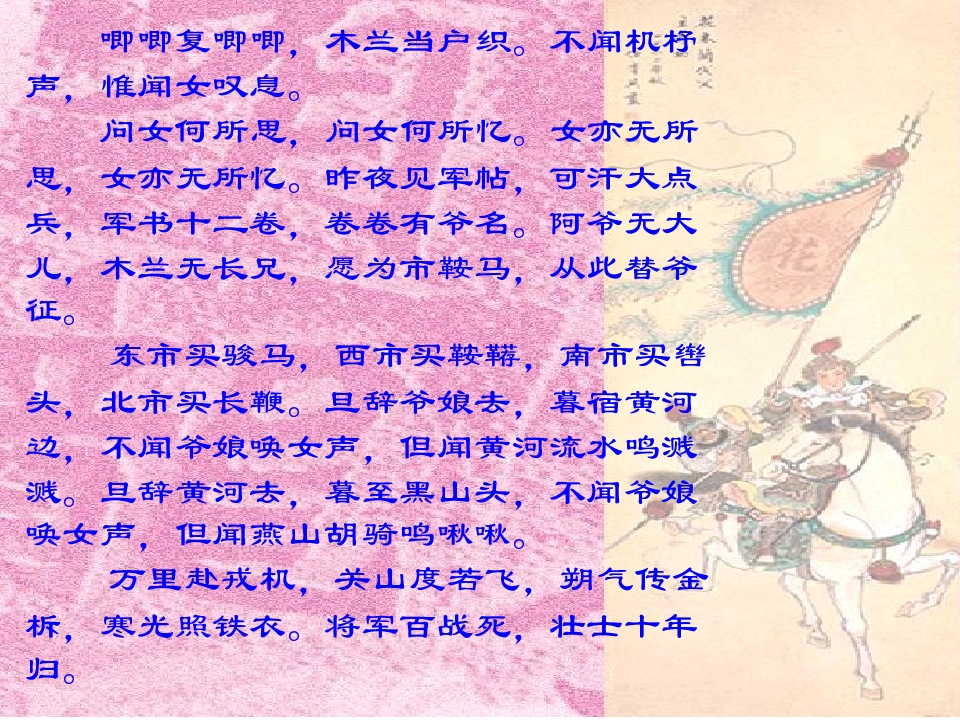 唧唧复唧唧，木兰当户织。不闻机杼
声，惟闻女叹息。
问女何所思，问女何所忆。女亦无所
思，女亦无所忆。昨夜见军帖，可汗大点
兵，军书十二卷，卷卷有爷名。阿爷无大
儿，木兰无长兄，愿为市鞍马，从此替爷
征。
东市买骏马，西市买鞍鞯，南市买辔
头，北市买长鞭。旦辞爷娘去，暮宿黄河
边，不闻爷娘唤女声，但闻黄河流水鸣溅
溅。旦辞黄河去，暮至黑山头，不闻爷娘
唤女声，但闻燕山胡骑鸣啾啾。
万里赴戎机，关山度若飞，朔气传金
柝，寒光照铁衣。将军百战死，壮士十年
归。
花